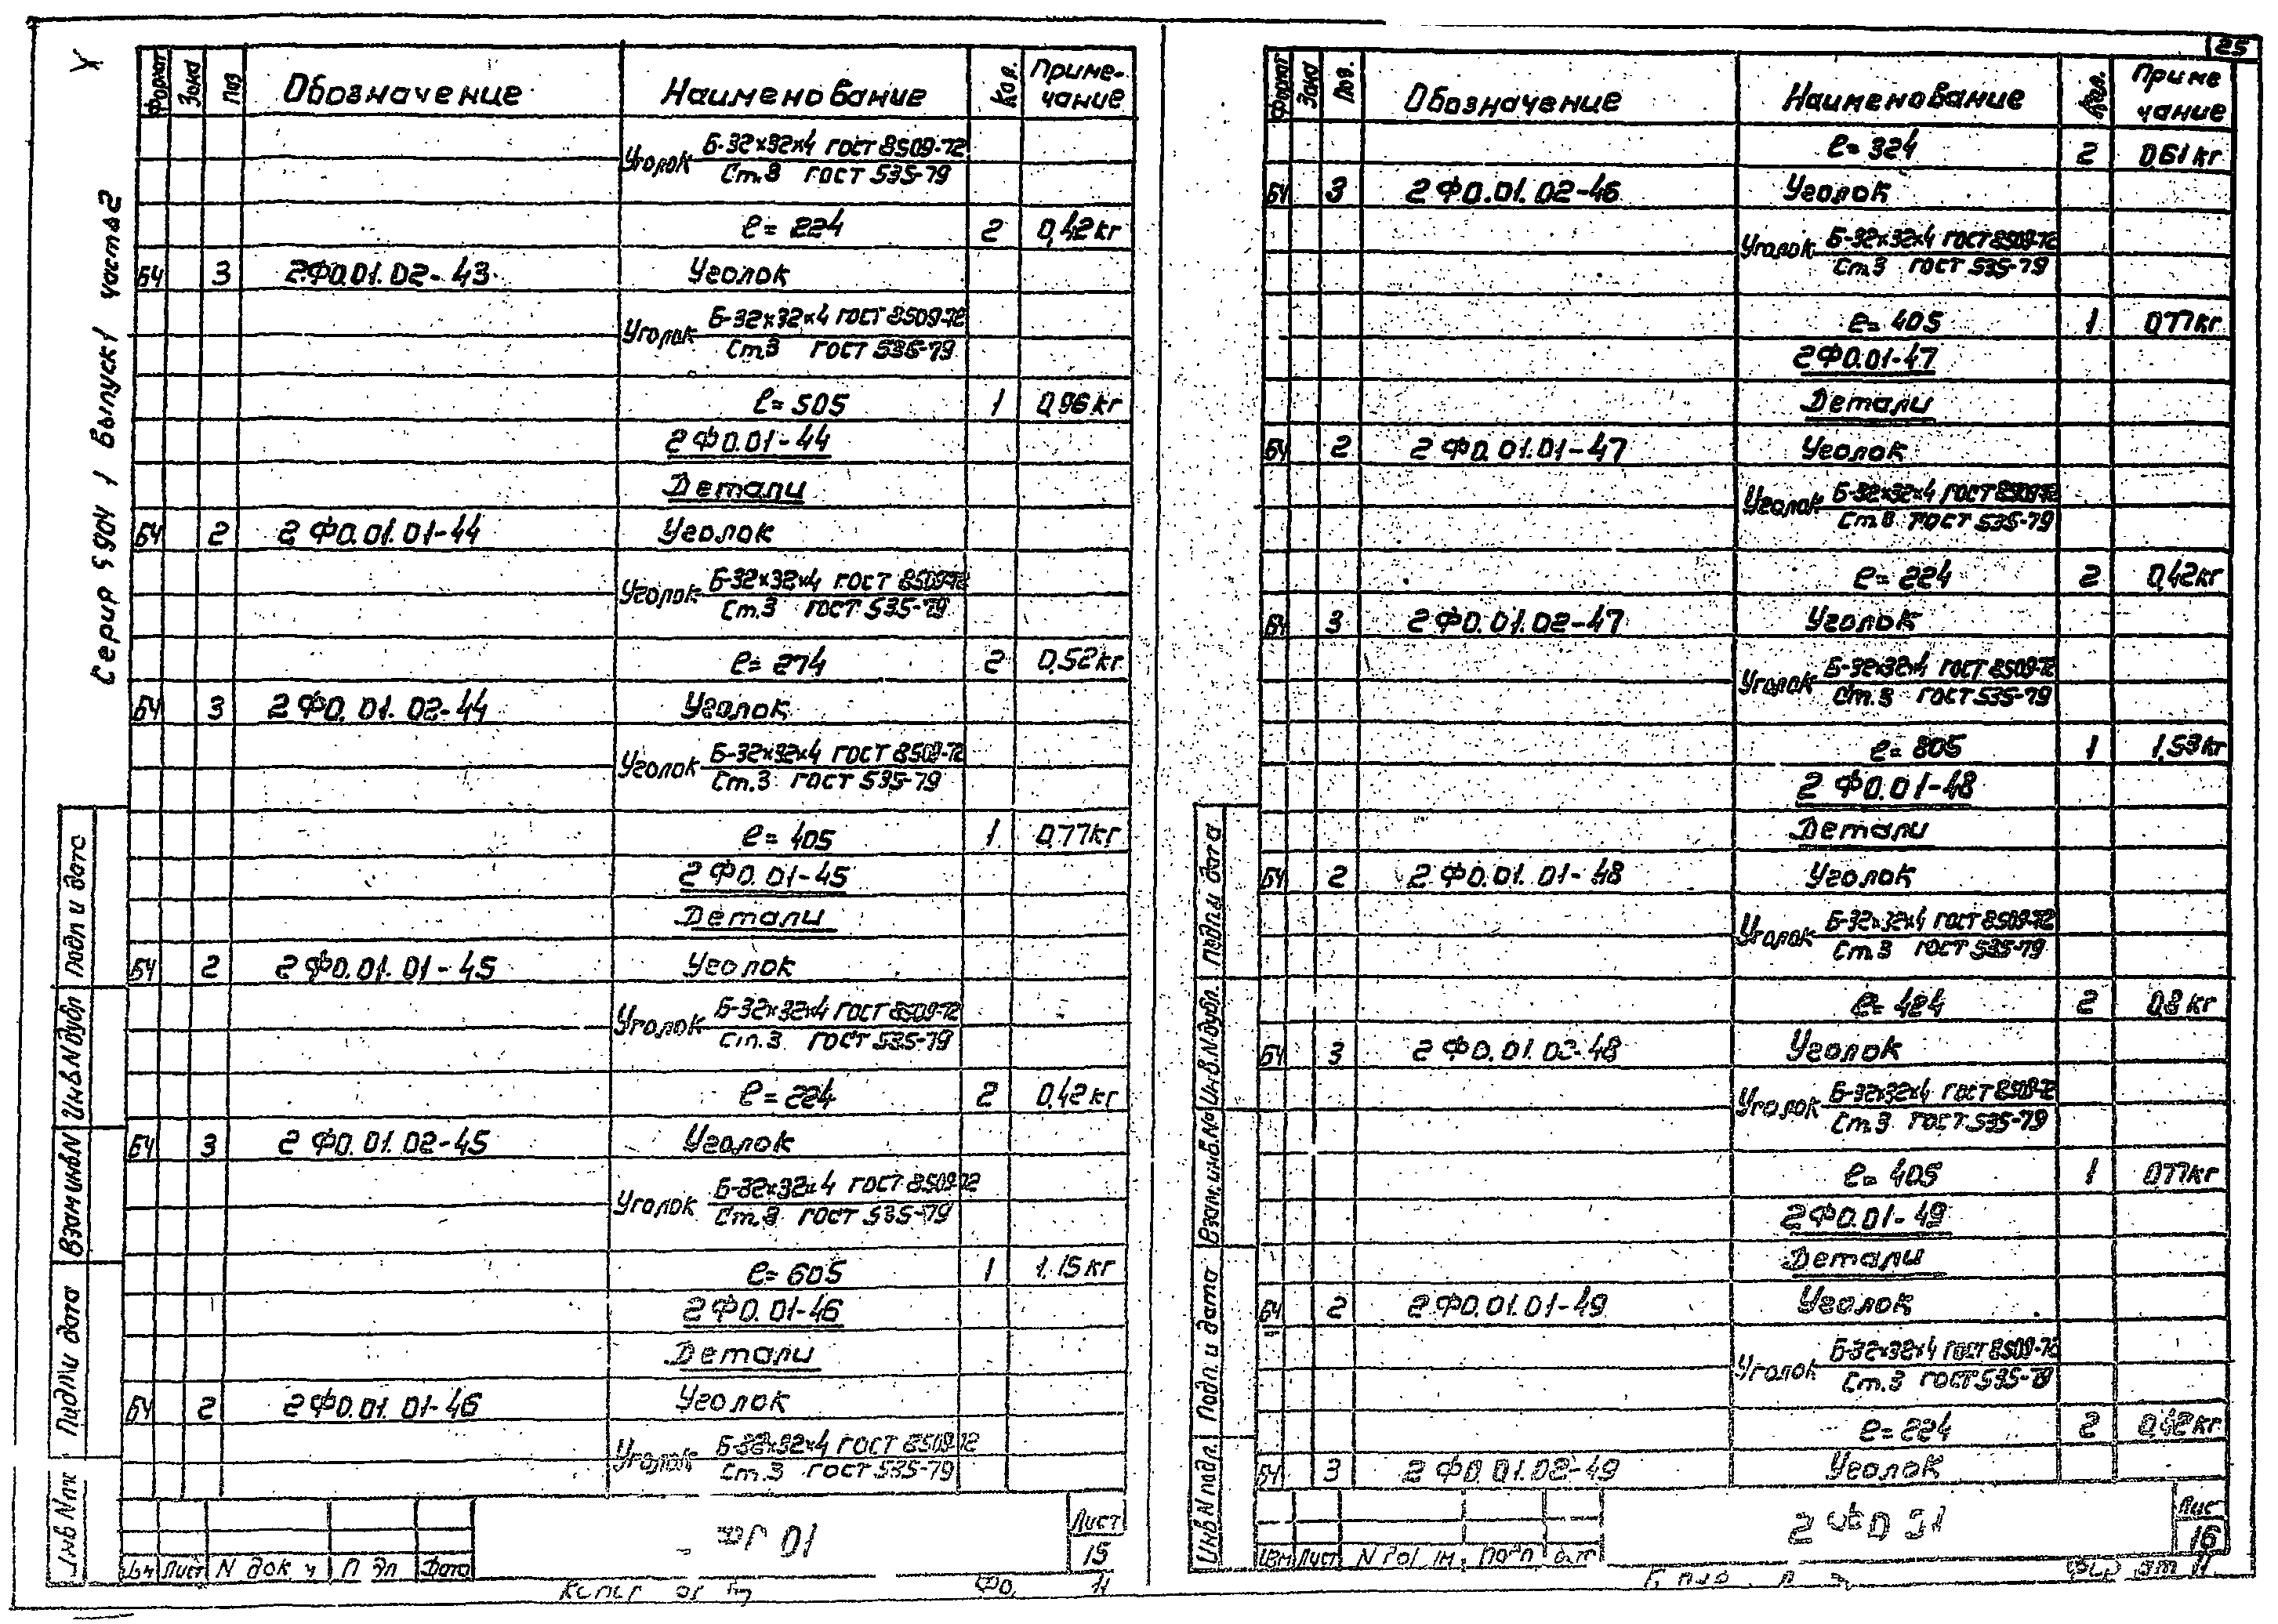 25
Серия 5.904-1 выпуск 1 часть 2
Формат Зона Поз Обозначение Наименование Кол. Приме-
чание
Уголок Б-32х32х4 ГОСТ 8509-72
Ст.3 ГОСТ 535-79
ℓ= 224 2 0,42кг
БЧ 3 2Ф0.01.02-43 Уголок
Уголок Б-32х32х4 ГОСТ 8509-72
Ст.3 ГОСТ 535-79
ℓ= 505 1 0,96кг
2Ф0.01-44
Детали
БЧ 2 2Ф0.01.01-44 Уголок
Уголок Б-32х32х4 ГОСТ 8509-72
Ст.3 ГОСТ 535-79
ℓ= 274 2 0,52кг
БЧ 3 2Ф0.01.02-44 Уголок
Уголок Б-32х32х4 ГОСТ 8509-72
Ст.3 ГОСТ 535-79
ℓ= 405 1 0,77кг
2Ф0.01-45
Детали
БЧ 2 2Ф0.01.01-45 Уголок
Уголок Б-32х32х4 ГОСТ 8509-72
Ст.3 ГОСТ 535-79
ℓ= 224 2 0,42кг
БЧ 3 2Ф0.01.02-45 Уголок
Уголок Б-32х32х4 ГОСТ 8509-72
Ст.3 ГОСТ 535-79
ℓ= 605 1 1.15кг
2Ф0.01-46
Детали
БЧ 2 2Ф0.01.01-46 Уголок
Уголок Б-32х32х4 ГОСТ 8509-72
Ст.3 ГОСТ 535-79
Подп и дата
Инв.N дубл
Взам инв.N
Подп и дата
Инв N
Изм Лист N док П дп Дата
01
Лист
15
Формат Зона Поз. Обозначение Наименование Кол. Приме
чание
ℓ= 324 2 0,61кг
БЧ 3 2Ф0.01.02-46 Уголок
Уголок Б-32х32х4 ГОСТ 8509-72
Ст.3 ГОСТ 535-79
ℓ= 405 1 0,77кг
2Ф0.01-47
Детали
БЧ 2 2Ф0.01.01-47 Уголок
Уголок Б-32х32х4 ГОСТ 8509-72
Ст.3 ГОСТ 535-79
ℓ= 224 2 0,42кг
БЧ 3 2Ф0.01.02-47 Уголок
Уголок Б-32х32х4 ГОСТ 8509-72
Ст.3 ГОСТ 535-79
ℓ= 805 1 1,53кг
2Ф0.01-48
Детали
БЧ 2 2Ф0.01.01-48 Уголок
Уголок Б-32х32х4 ГОСТ 8509-72
Ст.3 ГОСТ 535-79
ℓ= 424 2 0,8кг
БЧ 3 2Ф0.01.02-48 Уголок
Уголок Б-32х32х4 ГОСТ 8509-72
Ст.3 ГОСТ 535-79
ℓ= 405 1 0,77кг
2Ф0.01-49
Детали
БЧ 2 2Ф0.01.01-49 Уголок
Уголок Б-32х32х4 ГОСТ 8509-72
Ст.3 ГОСТ 535-79
ℓ= 224 2 0,42кг
БЧ 3 2Ф0.01.02-49 Уголок
Подпы дата
Инв.N дубл.
Взам.инв.№
Подп. и дата
Инв N подл.
Изм Лист
Лис
16
11